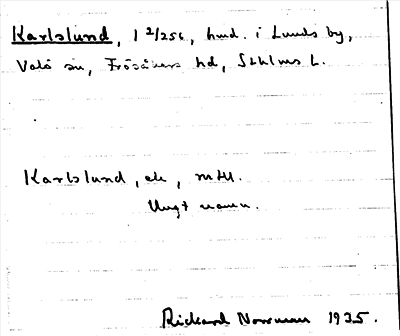 Karlslund, 1 2/256, hmd. i Lunds by,
Valö sn, Frösåkers hd, Sthlms L.
Karlslund, ek, mtl.
Ungt namn.
Rickard Norrman 1935.